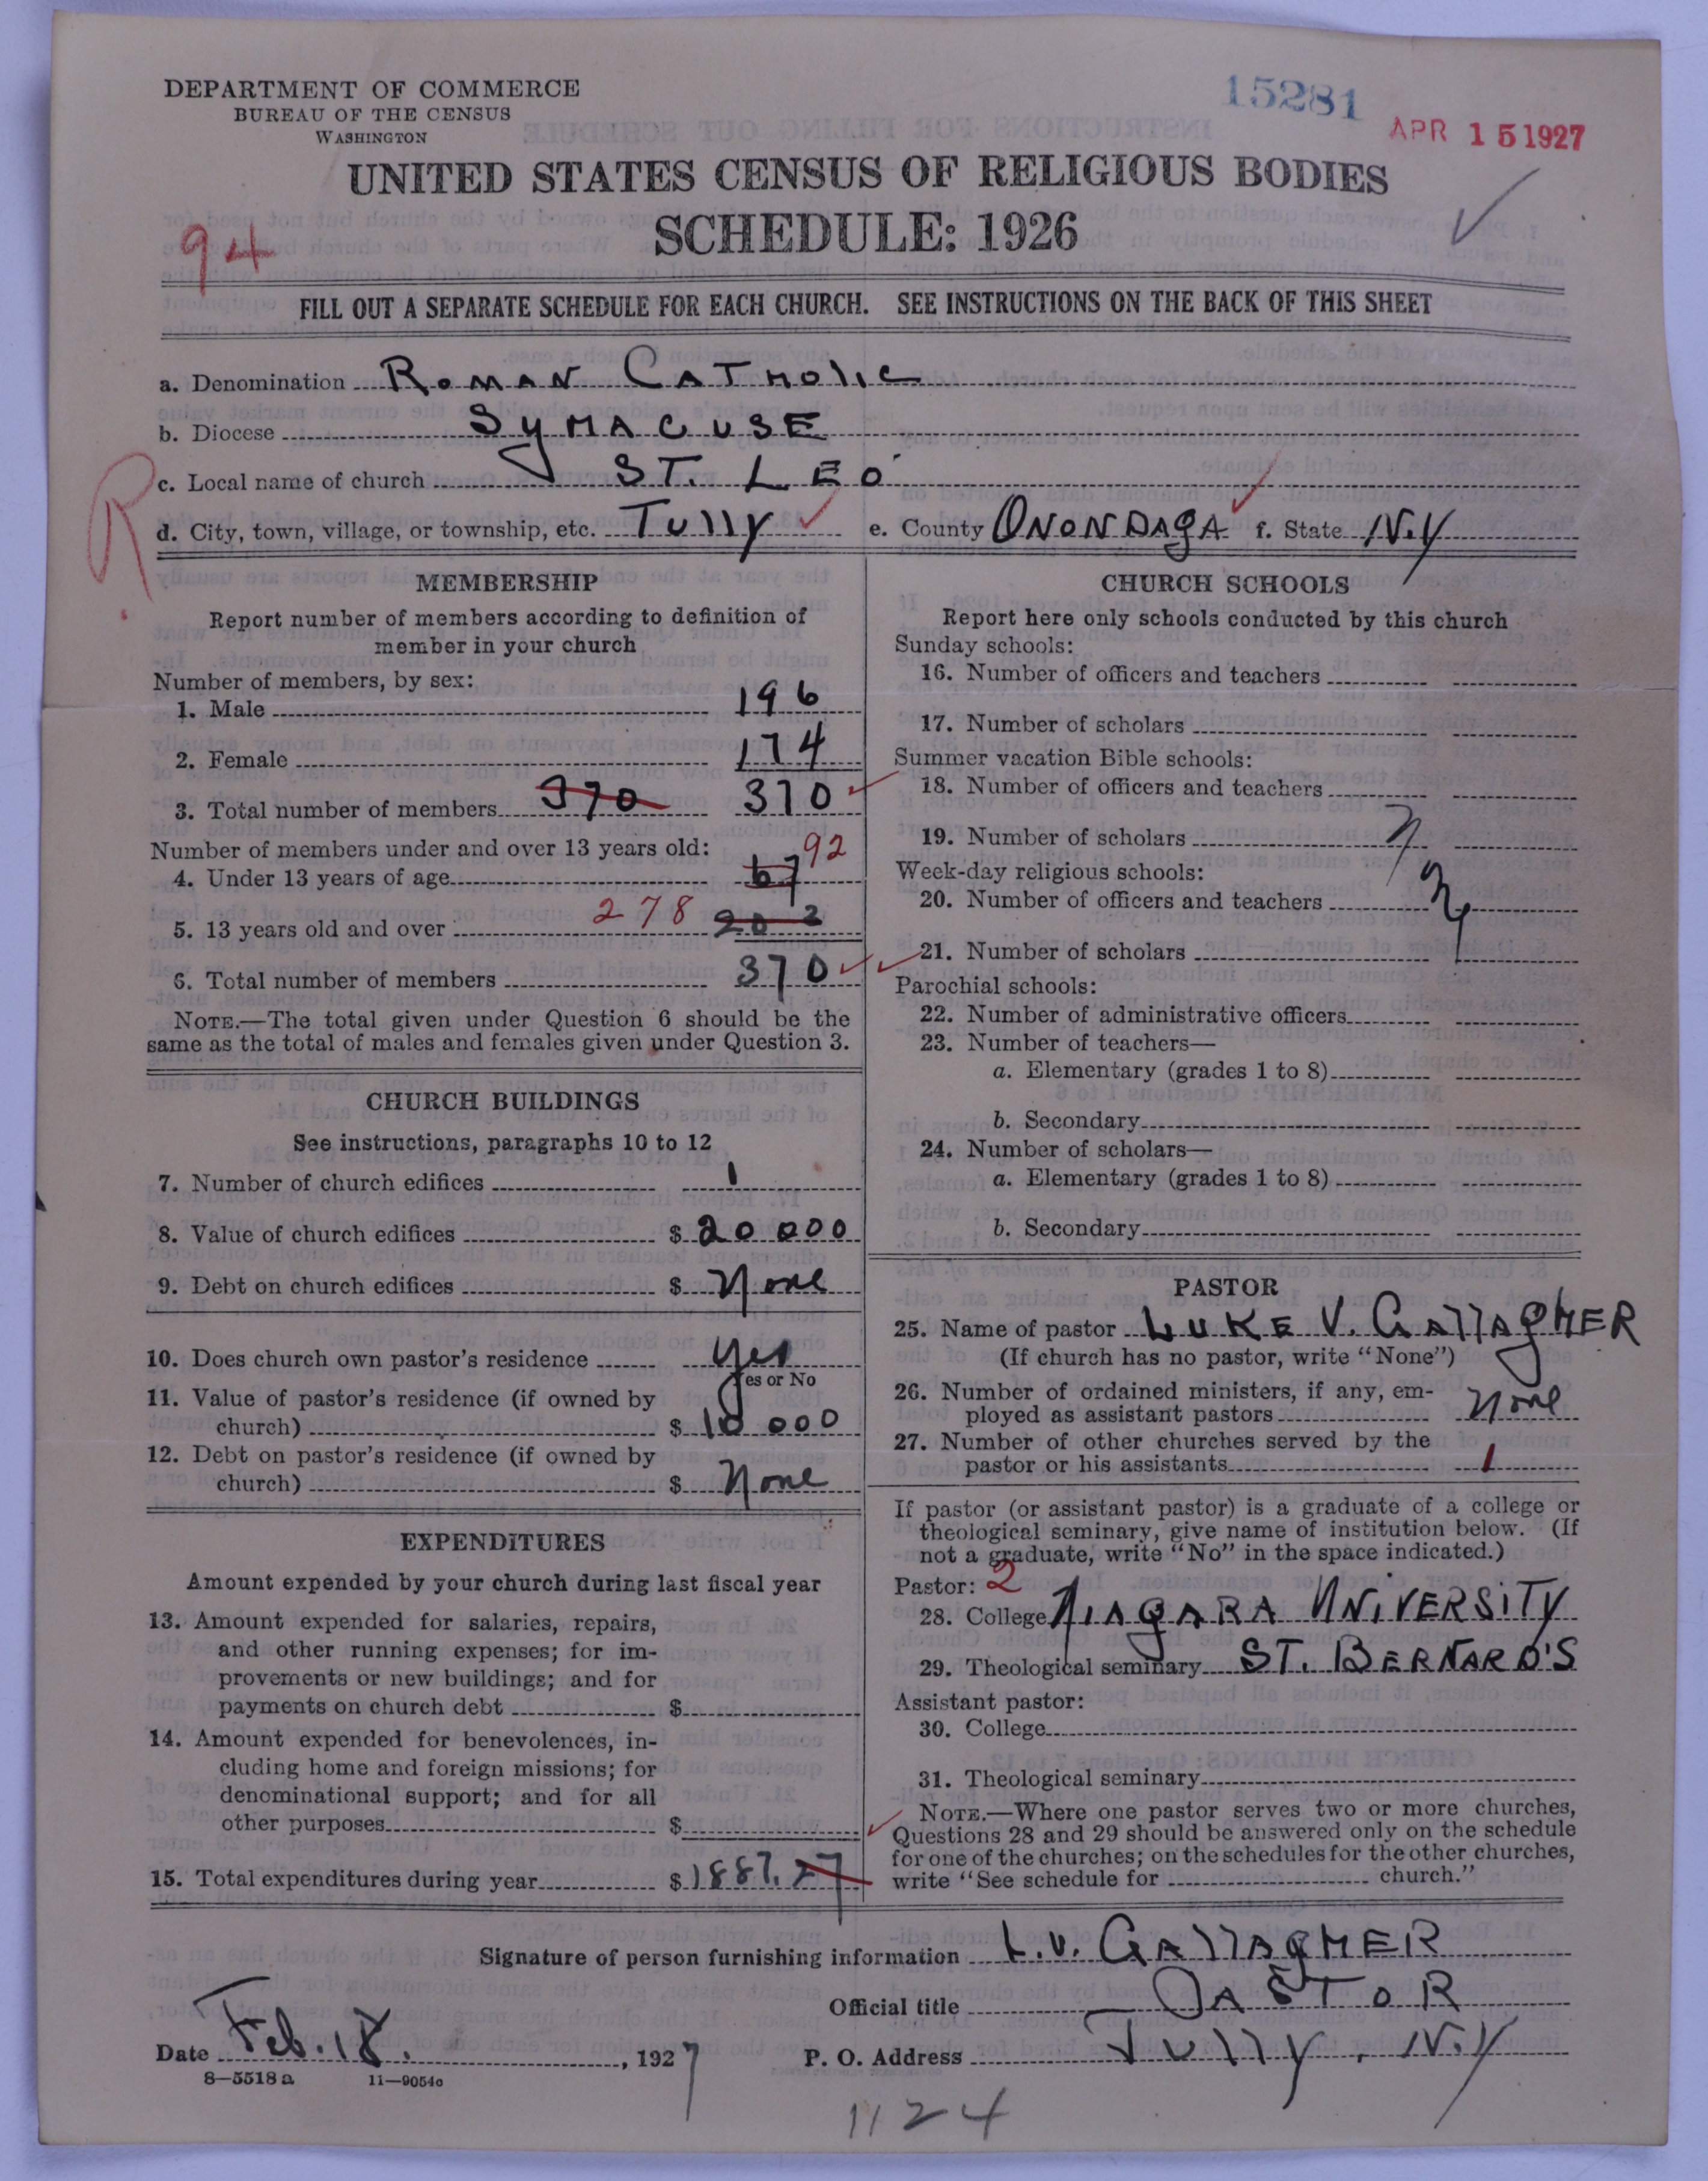 DEPARTMENT OF COMMERCE
BUREAU OF THE CENSUS
WASHINGTON
15281
APR 15 1927
UNITED STATES CENSUS OF RELIGIOUS BODIES
SCHEDULE: 1926
94
FILL OUT A SEPARATE SCHEDULE FOR EACH CHURCH. SEE INSTRUCTIONS ON THE BACK OF THIS SHEET
a. Denomination ROMAN CATHOLIC
b. Diocese SYRACUSE
R
c. Local name of church ST. LEO
d. City, town, village, or township, etc. Tully e. County ONONDAGA f. State N.Y
MEMBERSHIP
Report number of members according to definition of
member in your church
Number of members, by sex:
1. Male 196
2. Female 174
3. Total number of members 370 370
Number of members under and over 13 years old:
4. Under 13 years of age 67 92
5. 13 years old and over 278 202
6. Total number of members 370
NOTE.—The total given under Question 6 should be the
same as the total of males and females given under Question 3.
CHURCH BUILDINGS
See instructions, paragraphs 10 to 12
7. Number of church edifices 1
8. Value of church edifices $ 20 000
9. Debt on church edifices $ None
10. Does church own pastor's residence yes
Yes or No
11. Value of pastor's residence (if owned by
church) $ 10 000
12. Debt on pastor's residence (if owned by
church) $ None
EXPENDITURES
Amount expended by your church during last fiscal year
13. Amount expended for salaries, repairs,
and other running expenses; for im-
provements or new buildings; and for
payments on church debt $
14. Amount expended for benevolences, in-
cluding home and foreign missions; for
denominational support; and for all
other purposes $
15. Total expenditures during year $ 1887.27
CHURCH SCHOOLS
Report here only schools conducted by this church
Sunday schools:
16. Number of officers and teachers
17. Number of scholars
Summer vacation Bible schools:
18. Number of officers and teachers
19. Number of scholars
Week-day religious schools:
20. Number of officers and teachers
21. Number of scholars
Parochial schools:
22. Number of administrative officers
23. Number of teachers—
a. Elementary (grades 1 to 8)
b. Secondary
24. Number of scholars—
a. Elementary (grades 1 to 8)
b. Secondary
PASTOR
25. Name of pastor LUKE V. GALLAGHER
(If church has no pastor, write "None")
26. Number of ordained ministers, if any, em-
ployed as assistant pastors None
27. Number of other churches served by the
pastor or his assistants 1
If pastor (or assistant pastor) is a graduate of a college or
theological seminary, give name of institution below. (If
not a graduate, write "No" in the space indicated.)
Pastor: 2
28. College NIAGARA UNIVERSITY
29. Theological seminary ST. BERNARD'S
Assistant pastor:
30. College
31. Theological seminary
NOTE.—Where one pastor serves two or more churches,
Questions 28 and 29 should be answered only on the schedule
for one of the churches; on the schedules for the other churches,
write "See schedule for church."
Signature of person furnishing information L.V. GALLAGHER
Official title PASTOR
Date Feb. 18. , 1927 P. O. Address Tully, N.Y
8—5518 a 11—9054c
1124